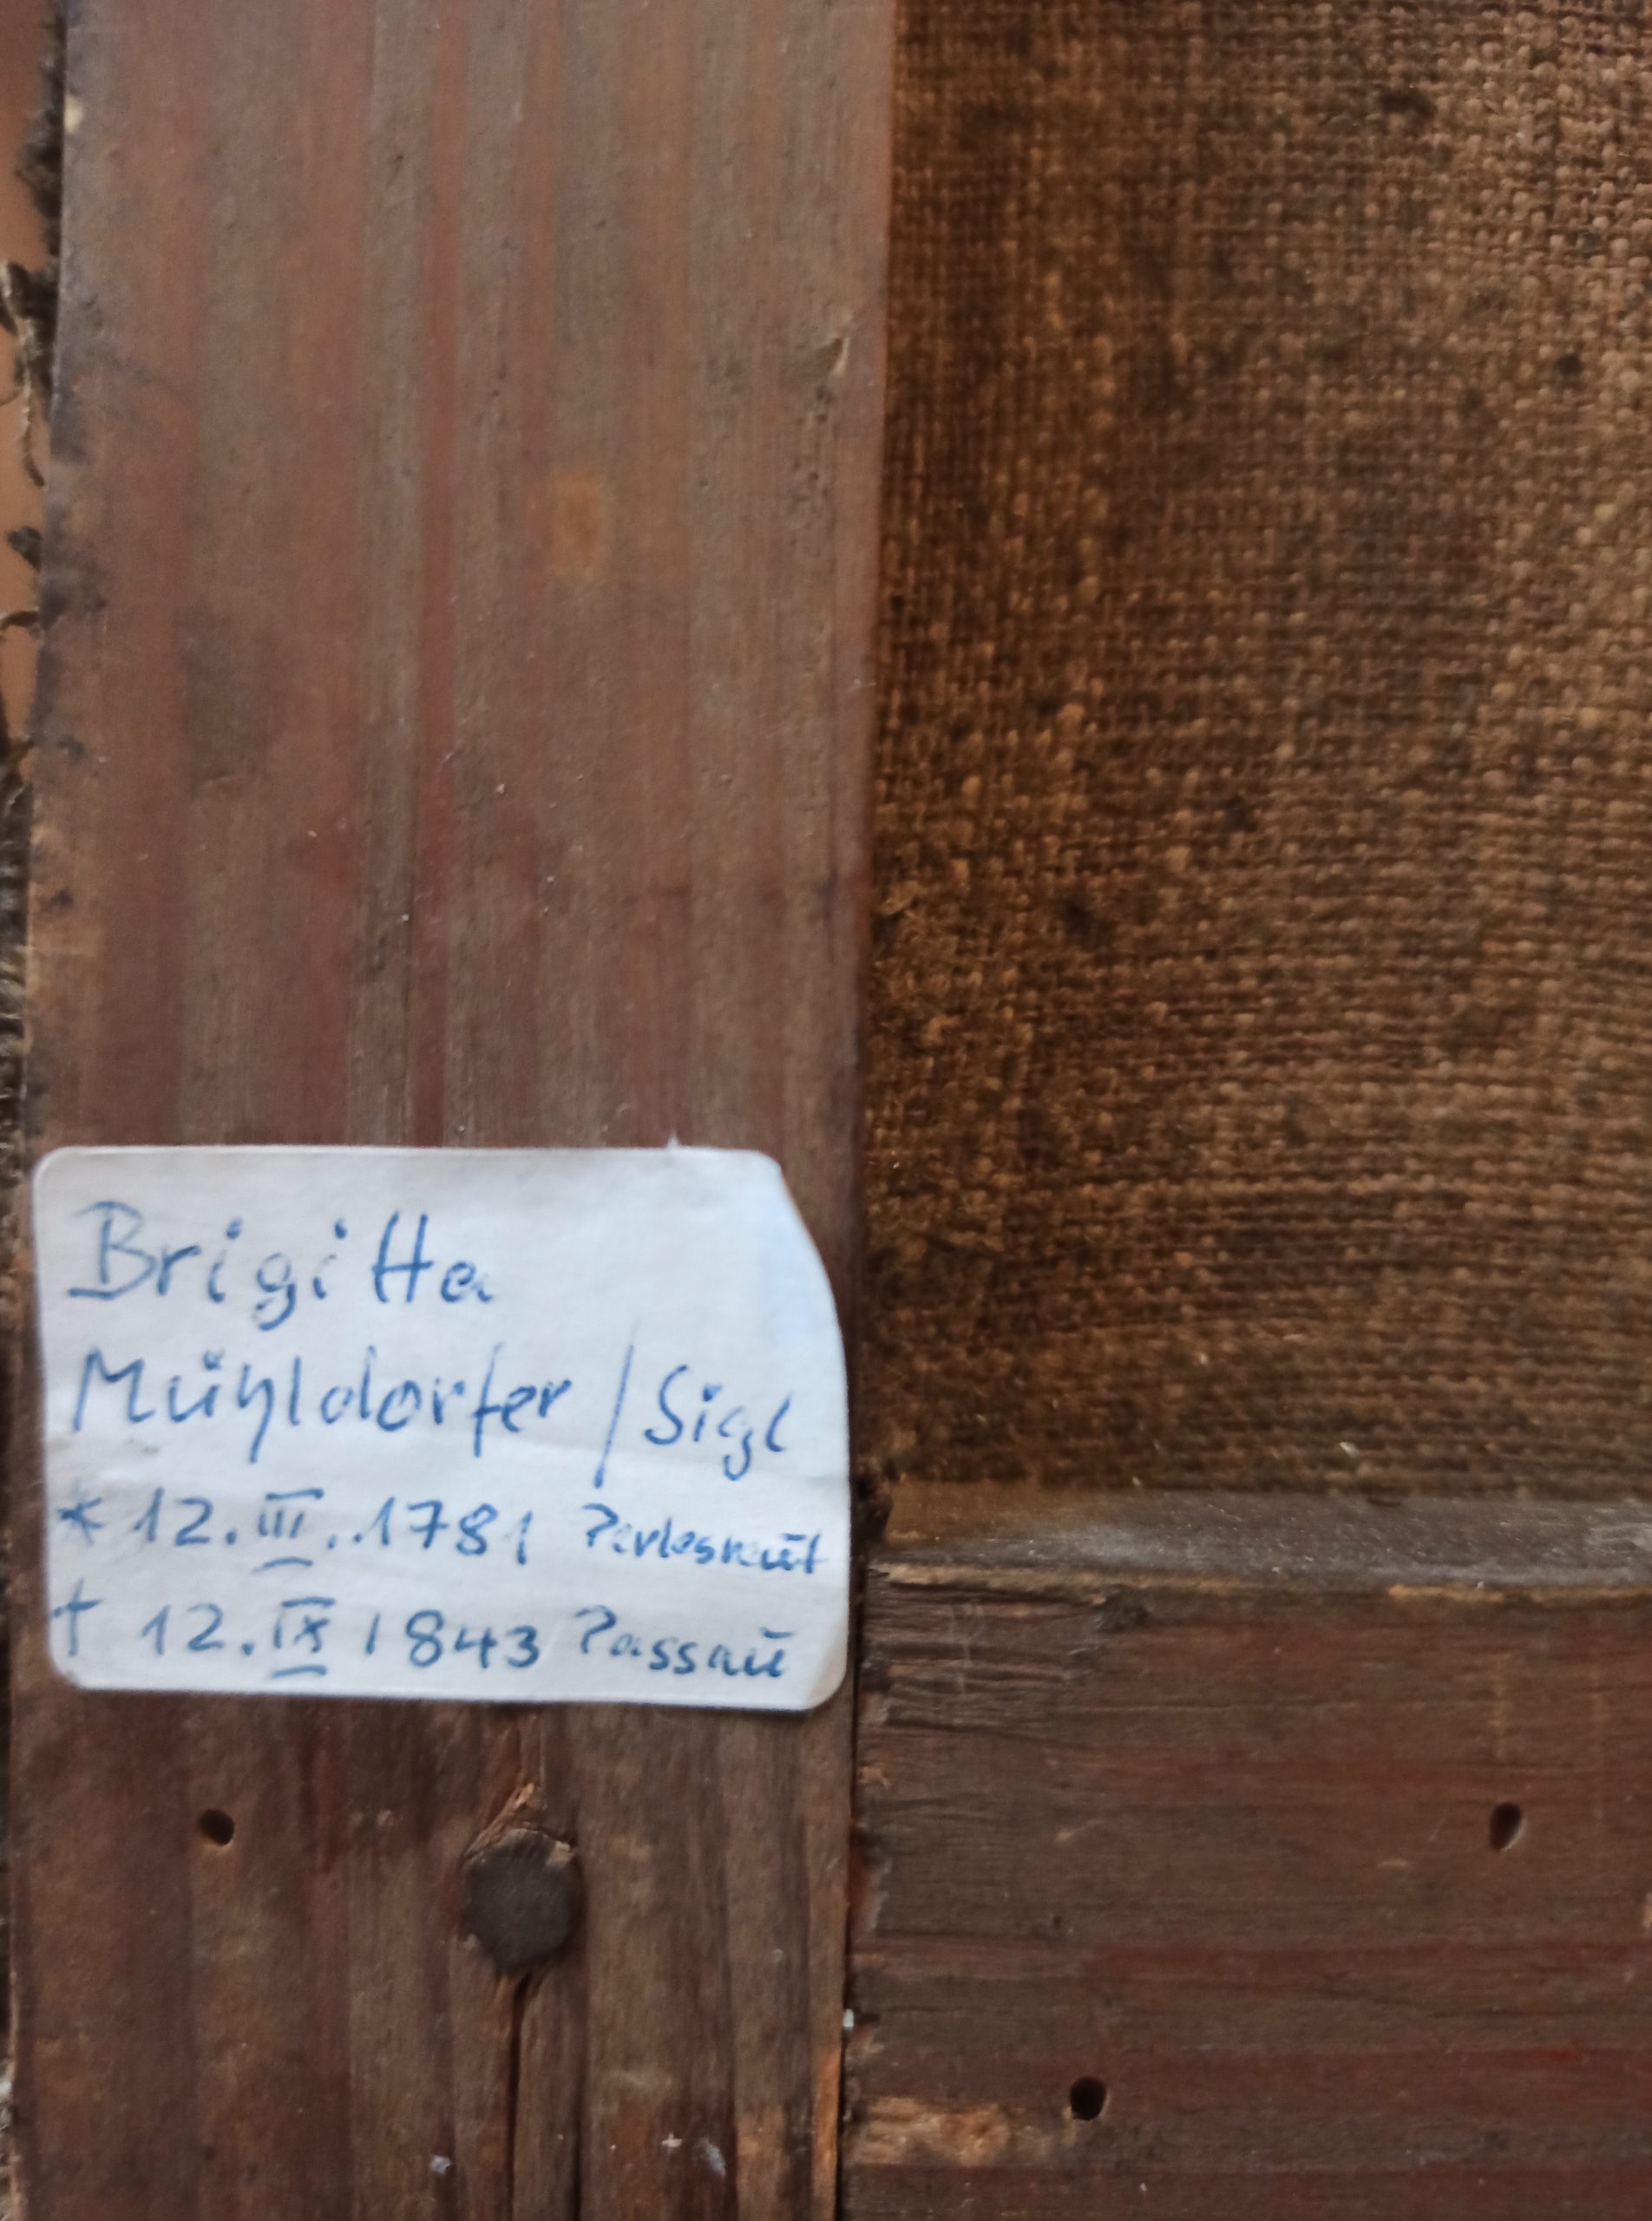 Brigitta
Mühldorfer / Sigl
* 12. III. 1781 Perlesreut
† 12. IX 1843 Passau